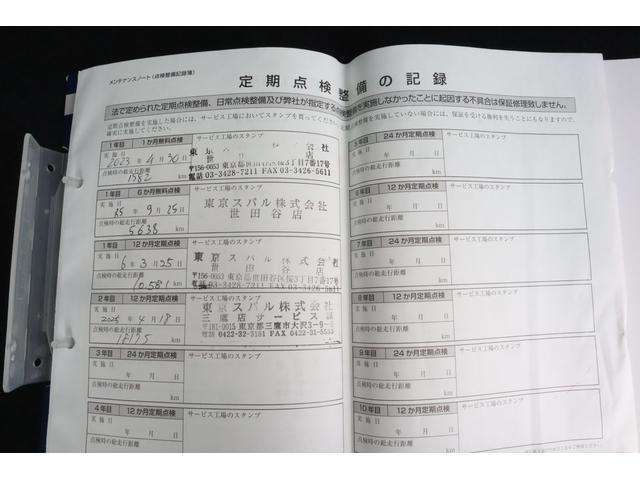 メンテナンスノート（点検整備記録簿）
定期点検整備の記録
法で定められた定期点検整備、日常点検整備及び弊社が指定する点検整備を実施しなかったことに起因する不具合は保証修理致しません。
定期点検整備を実施した場合には、サービス工場においてスタンプを買ってください。
確実に実施してください。
1年目 1か月無料点検 サービス工場のスタンプ
実施日 2023年4月30日
点検時の総走行距離
1582 km
世田谷店
〒156-0053 東京都世田谷区桜3丁目7番17号
電話 03-3428-7211 FAX 03-3426-5611
1年目 6か月無料点検 サービス工場のスタンプ
実施日 R5年9月25日
点検時の総走行距離
5638 km
東京スバル株式会社
世田谷店
1年目 12か月定期点検 サービス工場のスタンプ
実施日 6年3月25日
点検時の総走行距離
10,581 km
東京スバル株式会社
世田谷店
〒156-0053 東京都世田谷区桜3丁目7番17号
電話 03-3428-7211 FAX 03-3426-5611
2年目 24か月定期点検 サービス工場のスタンプ
実施日 2025年4月18日
点検時の総走行距離
km
東京スバル株式会社
三鷹店サービス課
〒181-0015 東京都三鷹市大沢3-9-6
電話 0422-32-3181 FAX 0422-31-
3年目 24か月定期点検 サービス工場のスタンプ
実施日
年 月 日
点検時の総走行距離
km
4年目 12か月定期点検 サービス工場のスタンプ
実施日
年 月 日
点検時の総走行距離
km
5年目 24か月定期点検 サービス工場のスタンプ
実施日
年 月 日
点検時の総走行距離
km
6年目 12か月定期点検 サービス工場のスタンプ
実施日
年 月 日
点検時の総走行距離
km
7年目 24か月定期点検 サービス工場のスタンプ
実施日
年 月 日
点検時の総走行距離
km
8年目 12か月定期点検 サービス工場のスタンプ
実施日
年 月 日
点検時の総走行距離
km
9年目 24か月定期点検 サービス工場のスタンプ
実施日
年 月 日
点検時の総走行距離
km
10年目 12か月定期点検 サービス工場のスタンプ
実施日
年 月 日
点検時の総走行距離
km